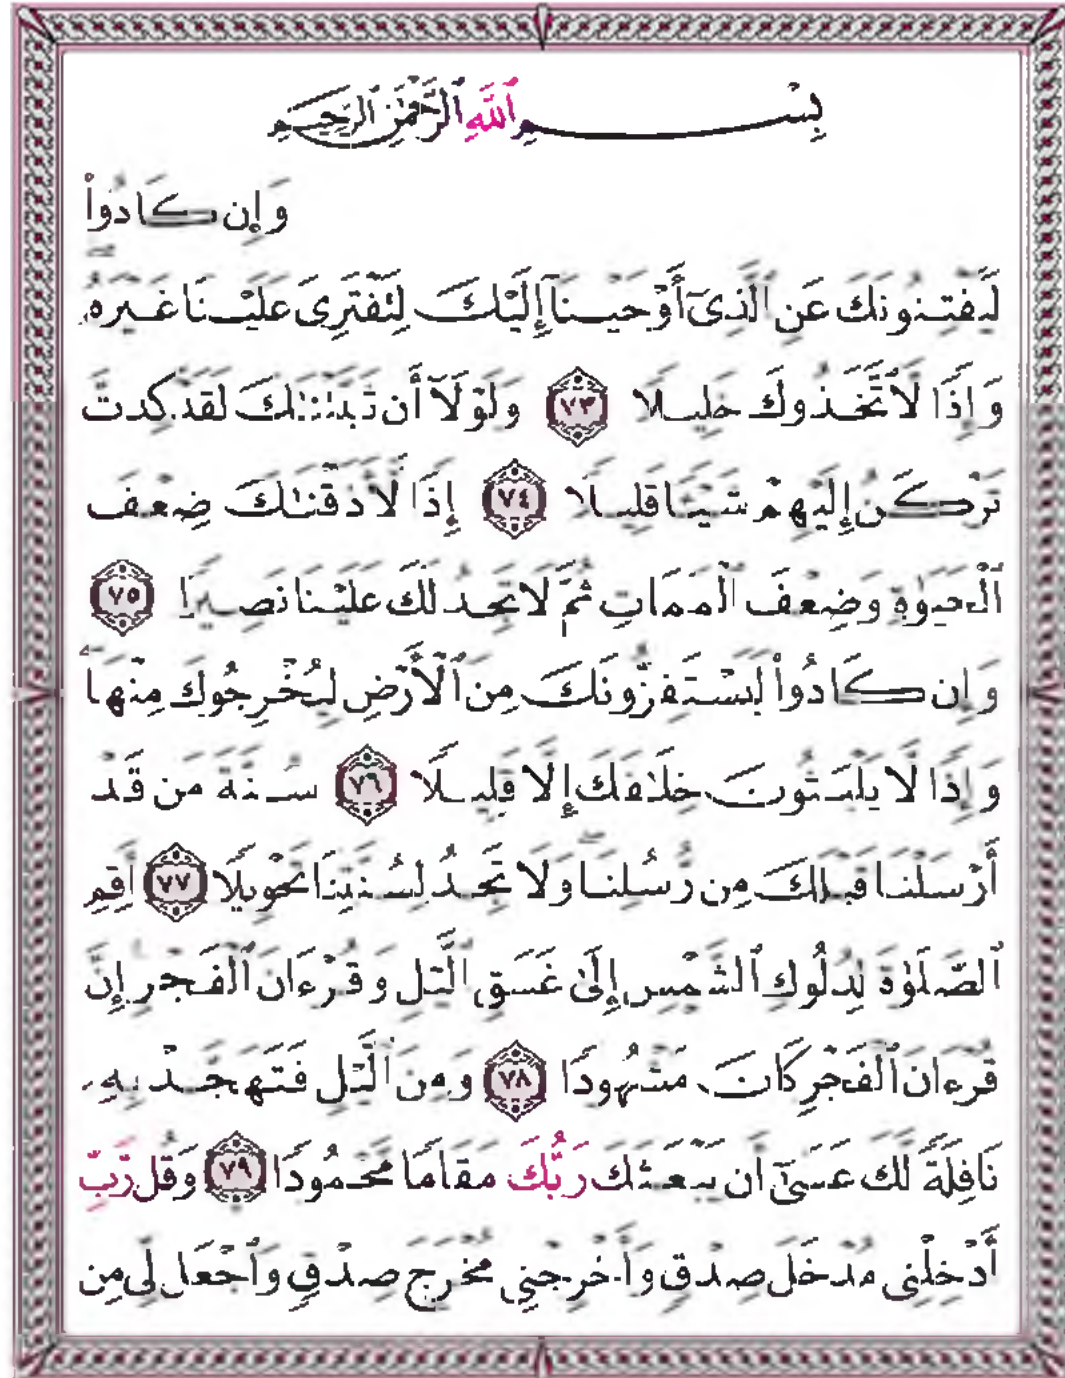 بِسْمِ ٱللَّهِ ٱلرَّحْمَٰنِ ٱلرَّحِيمِ
وَإِن كَادُوا۟
لَيَفْتِنُونَكَ عَنِ ٱلَّذِىٓ أَوْحَيْنَآ إِلَيْكَ لِتَفْتَرِىَ عَلَيْنَا غَيْرَهُۥ
وَإِذًا لَّٱتَّخَذُوكَ خَلِيلًا ٧٣ وَلَوْلَآ أَن ثَبَّتْنَٰكَ لَقَدْ كِدتَّ
تَرْكَنُ إِلَيْهِمْ شَيْـًٔا قَلِيلًا ٧٤ إِذًا لَّأَذَقْنَٰكَ ضِعْفَ
ٱلْحَيَوٰةِ وَضِعْفَ ٱلْمَمَاتِ ثُمَّ لَا تَجِدُ لَكَ عَلَيْنَا نَصِيرًا ٧٥
وَإِن كَادُوا۟ لَيَسْتَفِزُّونَكَ مِنَ ٱلْأَرْضِ لِيُخْرِجُوكَ مِنْهَا ۖ
وَإِذًا لَّا يَلْبَثُونَ خِلَٰفَكَ إِلَّا قَلِيلًا ٧٦ سُنَّةَ مَن قَدْ
أَرْسَلْنَا قَبْلَكَ مِن رُّسُلِنَا ۖ وَلَا تَجِدُ لِسُنَّتِنَا تَحْوِيلًا ٧٧ أَقِمِ
ٱلصَّلَوٰةَ لِدُلُوكِ ٱلشَّمْسِ إِلَىٰ غَسَقِ ٱلَّيْلِ وَقُرْءَانَ ٱلْفَجْرِ إِنَّ
قُرْءَانَ ٱلْفَجْرِ كَانَ مَشْهُودًا ٧٨ وَمِنَ ٱلَّيْلِ فَتَهَجَّدْ بِهِۦ
نَافِلَةً لَّكَ عَسَىٰٓ أَن يَبْعَثَكَ رَبُّكَ مَقَامًا مَّحْمُودًا ٧٩ وَقُل رَّبِّ
أَدْخِلْنِى مُدْخَلَ صِدْقٍ وَأَخْرِجْنِى مُخْرَجَ صِدْقٍ وَٱجْعَل لِّى مِن